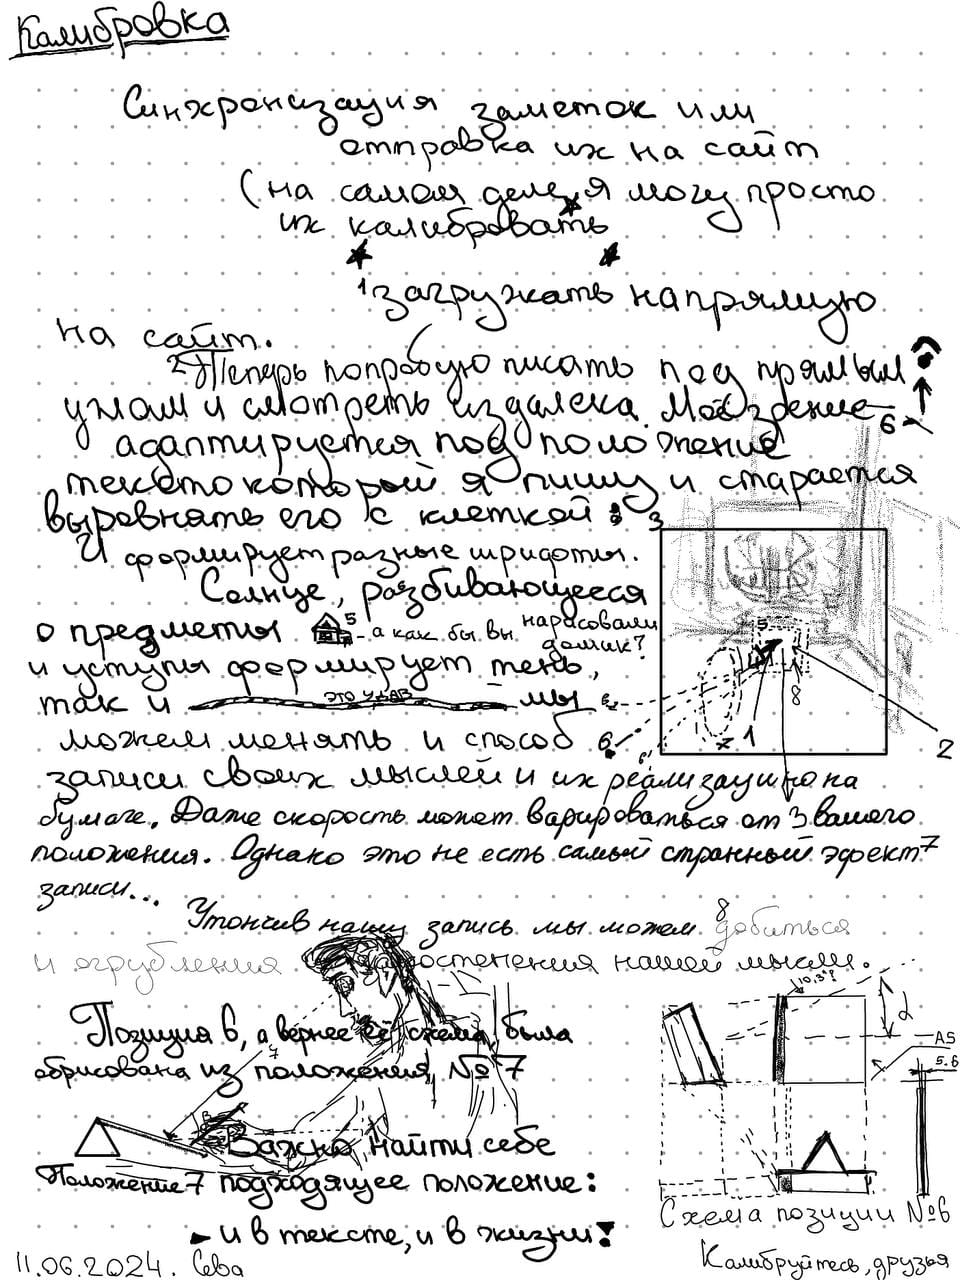 Калибровка
Синхронизация заметок или
отправка их на сайт
(на самом деле, я могу просто
их калибровать
1 загружать напрямую
на сайт.
2 Теперь попробую писать под прямым
углом и смотреть издалека. Моё зрение
6
адаптируется под положение
текста который я пишу и старается
выровнять его с клеткой :
3
И формирует разные шрифты.
Солнце, разбивающееся
о предметы
5
- а как бы вы нарисовали
домик?
5
и уступы формирует тень,
так и
это удав
мы
6
8
можем менять и способ
6
1
2
записи своих мыслей и их реализацию на
бумаге. Даже скорость может варироваться от 3 вашего
положения. Однако это не есть самый странный эфект 7
записи...
Утончив нашу запись мы можем 8 добиться
и огрубления
нашей мысли.
10,3°?
Позиция 6, а вернее её схема, была
7
A5
обрисована из положения №7
5.6
Важно найти себе
Положение 7 подходящее положение:
- и в тексте, и в жизни!
Схема позиции №6
11.06.2024. Сева
Калибруйтесь, друзья